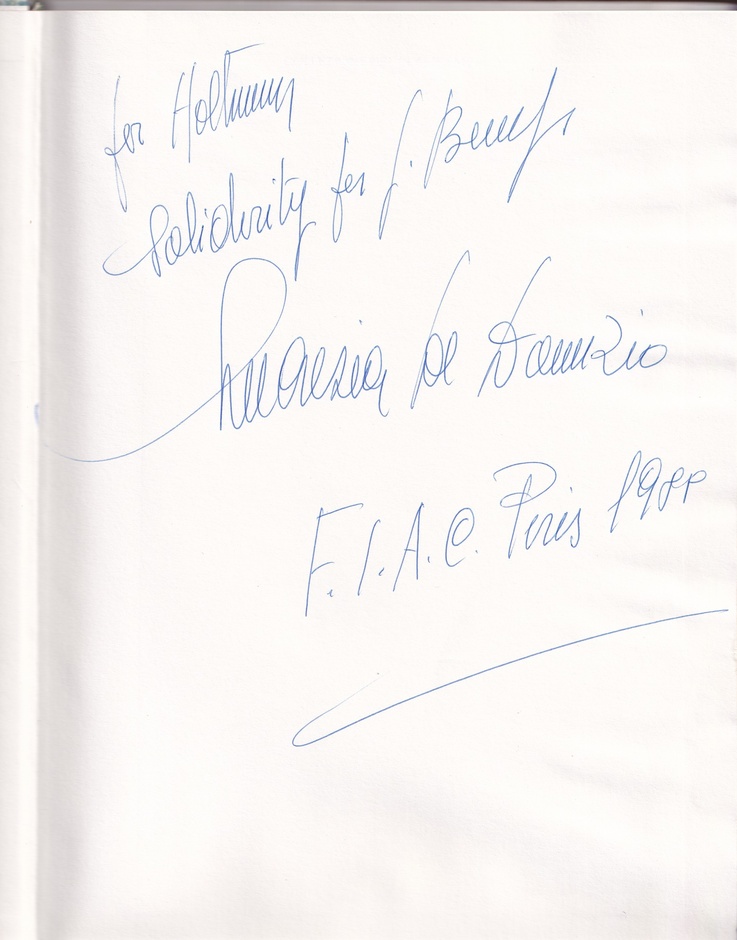 for Holtmann
Solidarity for J. Beuys
Lucrezia De Domizio
F.I.A.C. Paris 1988